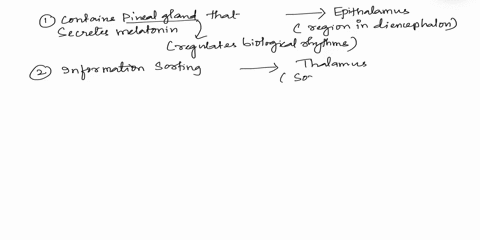 ① Contains Pineal gland that → Epithalamus
Secretes melatonin ( region in diencephalon)
(regulates biological rhythms)
② Information Sorting → Thalamus
( So